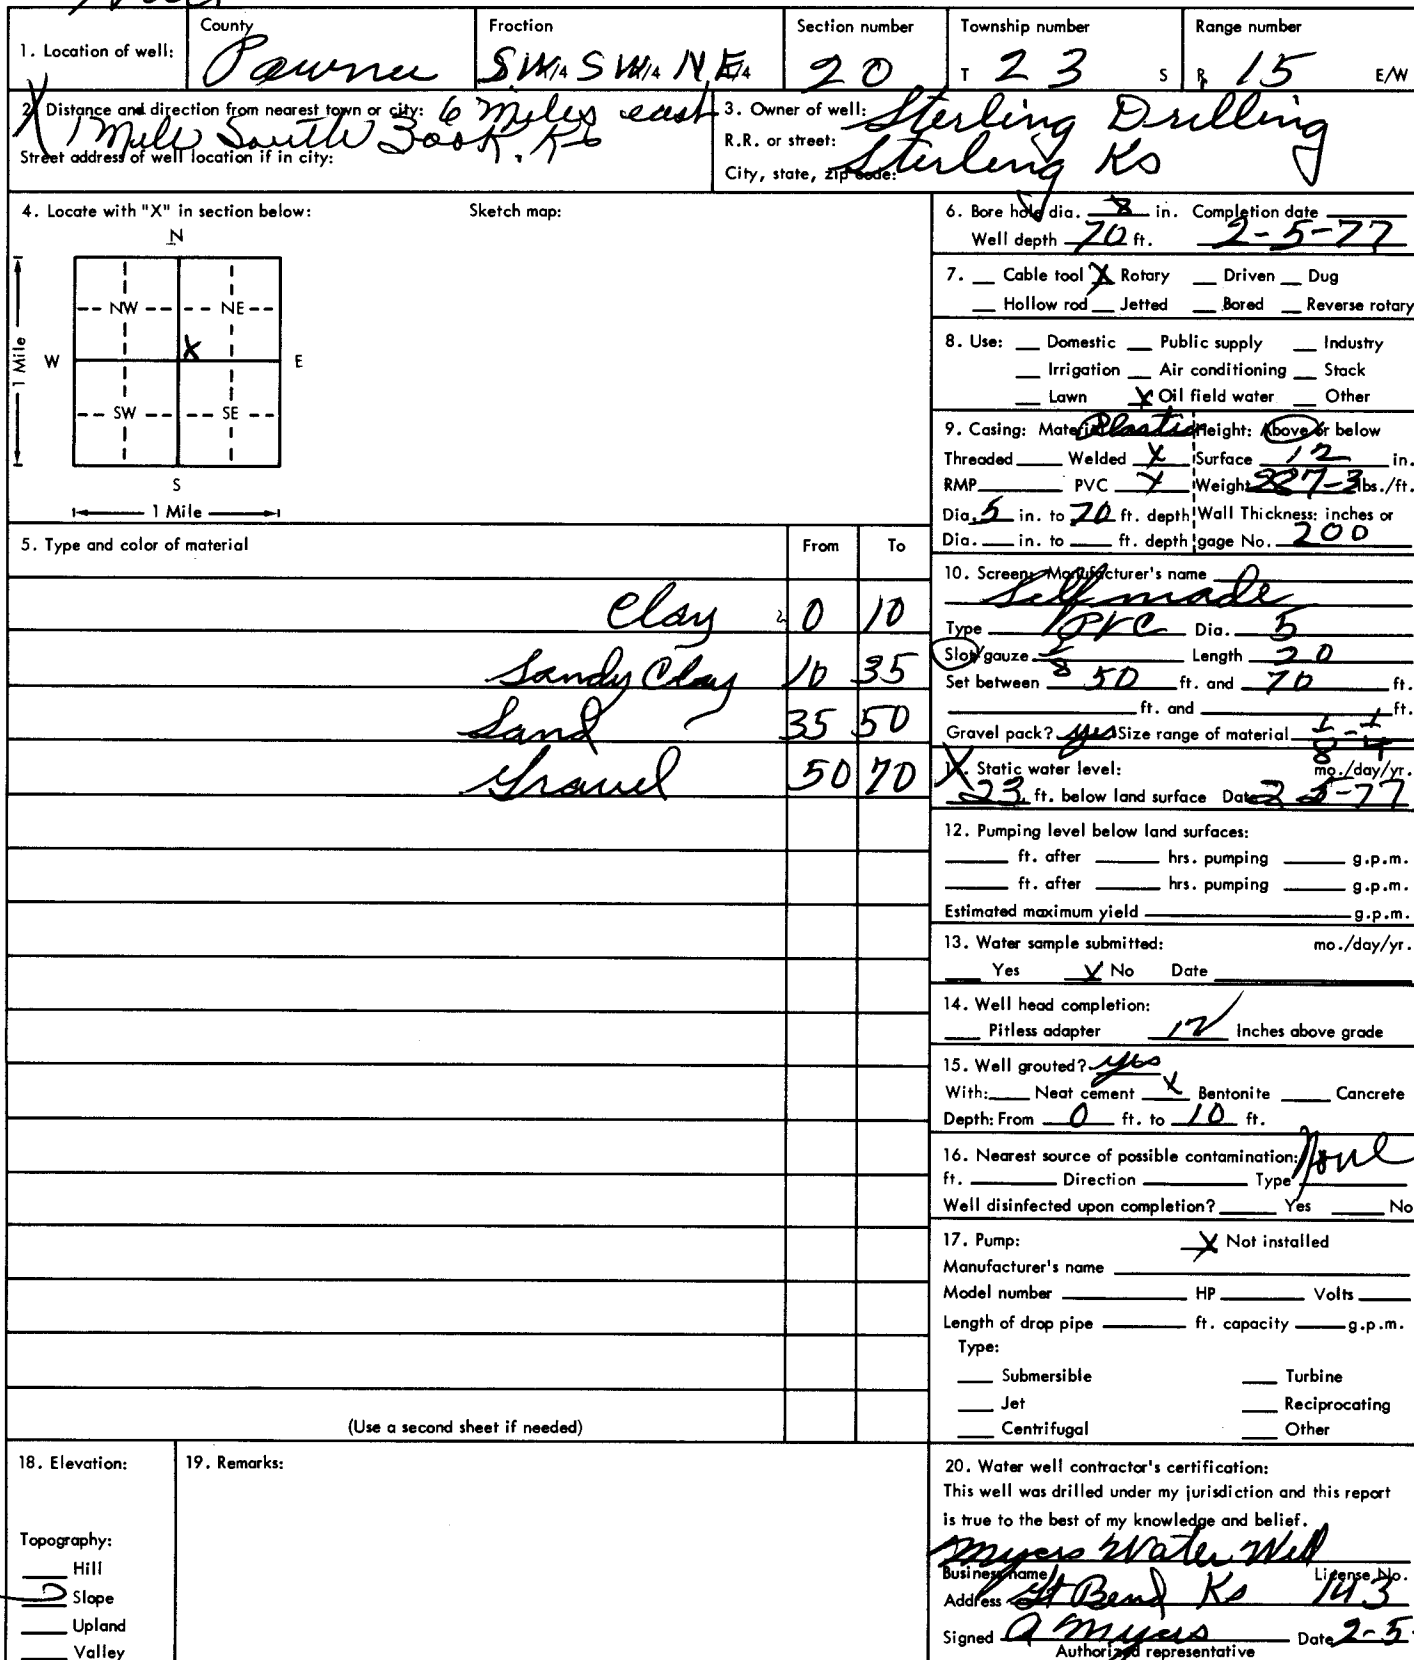 County Fraction Section number Township number Range number
1. Location of well: Pawnee SW 1/4 SW 1/4 NE 1/4 20 T 23 S R 15 E/W
2. Distance and direction from nearest town or city: 6 Miles east
1 Mile South Zook, Ks
Street address of well location if in city:
3. Owner of well: Sterling Drilling
R.R. or street:
City, state, zip code: Sterling Ks
4. Locate with "X" in section below: Sketch map:
N
NW NE
1 Mile W X E
SW SE
S
1 Mile
5. Type and color of material From To
Clay 0 10
Sandy Clay 10 35
Sand 35 50
Gravel 50 70
(Use a second sheet if needed)
6. Bore hole dia. 8 in. Completion date
Well depth 70 ft. 2-5-77
7. Cable tool X Rotary Driven Dug
Hollow rod Jetted Bored Reverse rotary
8. Use: Domestic Public supply Industry
Irrigation Air conditioning Stock
Lawn X Oil field water Other
9. Casing: Material Plastic Height: Above or below
Threaded Welded X Surface 12 in.
RMP PVC X Weight lbs./ft.
Dia. 5 in. to 70 ft. depth Wall Thickness: inches or
Dia. in. to ft. depth gage No. 200
10. Screen: Manufacturer's name
Self made
Type PVC Dia. 5
Slot/gauze Length 20
Set between 50 ft. and 70 ft.
ft. and ft.
Gravel pack? yes Size range of material 1/8 - 1/4
Static water level: mo./day/yr.
23 ft. below land surface Date 2-5-77
12. Pumping level below land surfaces:
ft. after hrs. pumping g.p.m.
ft. after hrs. pumping g.p.m.
Estimated maximum yield g.p.m.
13. Water sample submitted: mo./day/yr.
Yes X No Date
14. Well head completion:
Pitless adapter 12 Inches above grade
15. Well grouted? yes
With: Neat cement X Bentonite Cancrete
Depth: From 0 ft. to 10 ft.
16. Nearest source of possible contamination: None
ft. Direction Type
Well disinfected upon completion? Yes No
17. Pump: X Not installed
Manufacturer's name
Model number HP Volts
Length of drop pipe ft. capacity g.p.m.
Type:
Submersible Turbine
Jet Reciprocating
Centrifugal Other
18. Elevation:
Topography:
Hill
Slope
Upland
Valley
19. Remarks:
20. Water well contractor's certification:
This well was drilled under my jurisdiction and this report
is true to the best of my knowledge and belief.
Myers Water Well
Business name License No.
Address Gt Bend Ks 143
Signed A Myers Date 2-5-
Authorized representative